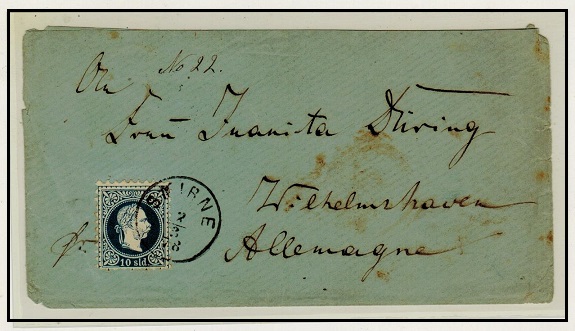 No 22.
An
Frau Juanita Düring
Wilhelmshaven
Allemagne
10 sld